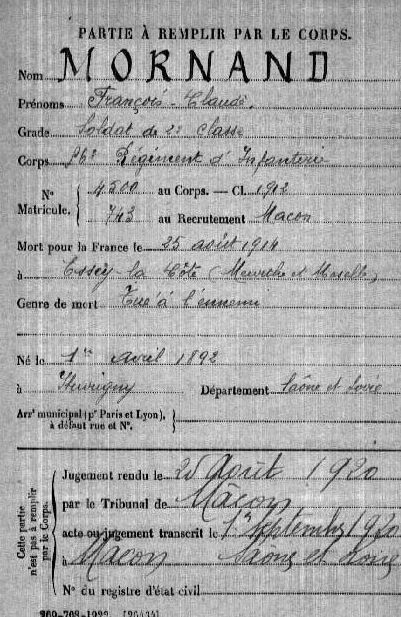 PARTIE À REMPLIR PAR LE CORPS.
Nom MORNAND
Prénoms François-Claude.
Grade Soldat de 2e Classe
Corps 26e Régiment d'Infanterie
N° Matricule. { 4500 au Corps. — Cl. 1912
743 au Recrutement Macon
Mort pour la France le 25 août 1914
à Essey-la Côte (Meurthe et Moselle)
Genre de mort Tué à l'ennemi
Né le 1er avril 1892
à Département Saône et Loire
Arrt municipal (pr Paris et Lyon), à défaut rue et N°. }
Cette partie n'est pas à remplir par le Corps.
Jugement rendu le Août 1920
par le Tribunal de Mâcon
acte ou jugement transcrit le 1er Septembre 1920
à Macon Saône et Loire
N° du registre d'état civil